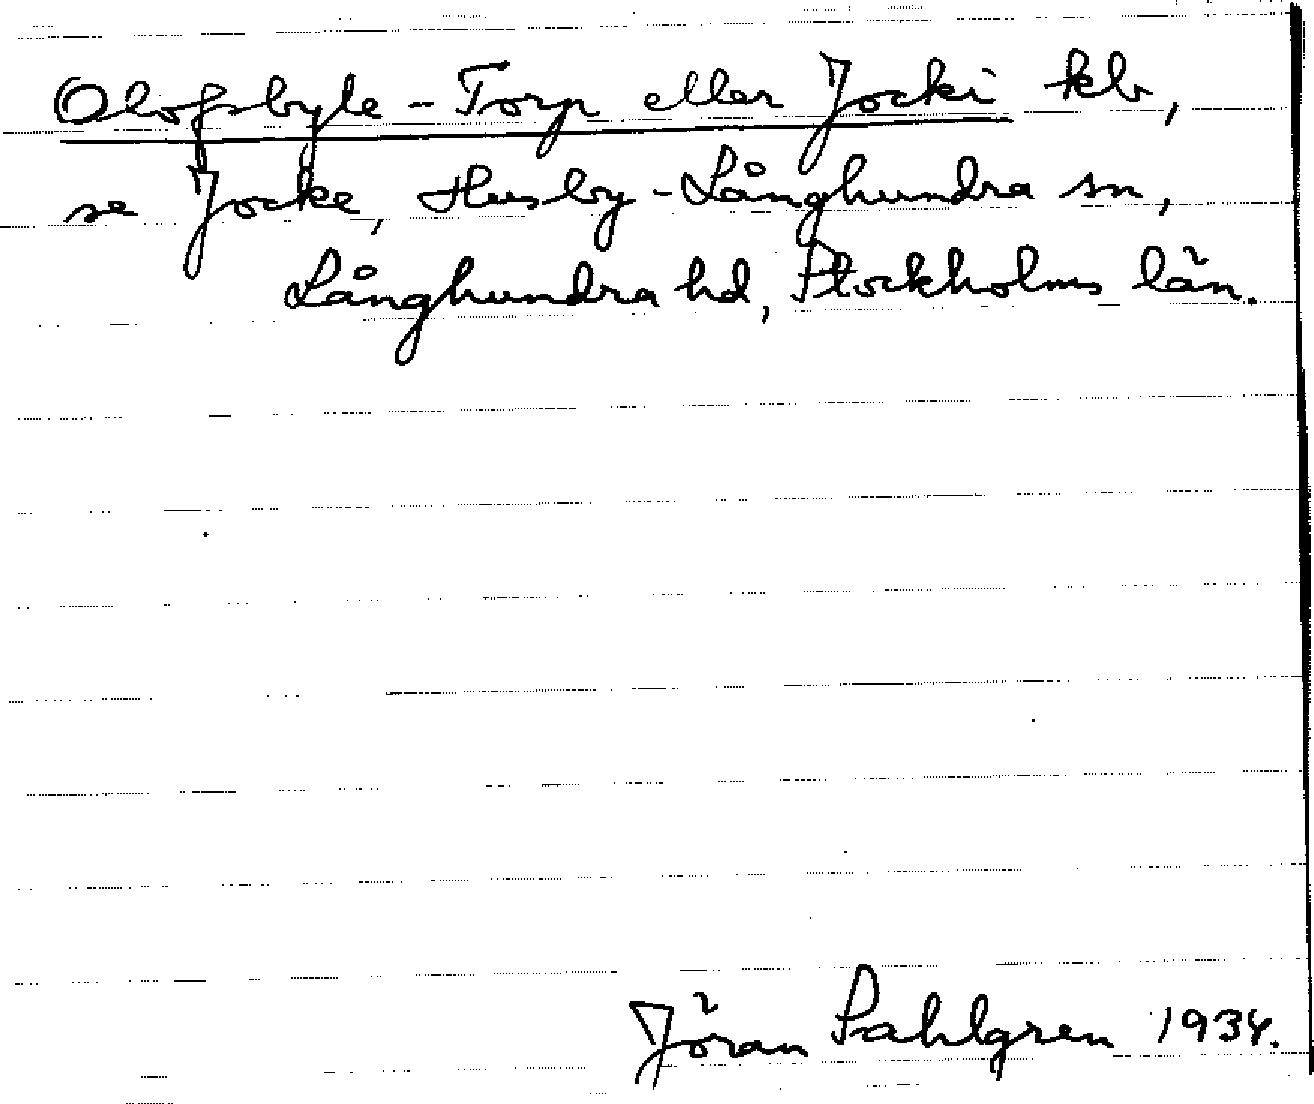 Olofsbyle-Torp eller Jocki klb,
se Jocke, Husby-Långhundra sn,
Långhundra hd, Stockholms län.
Jöran Sahlgren 1934.